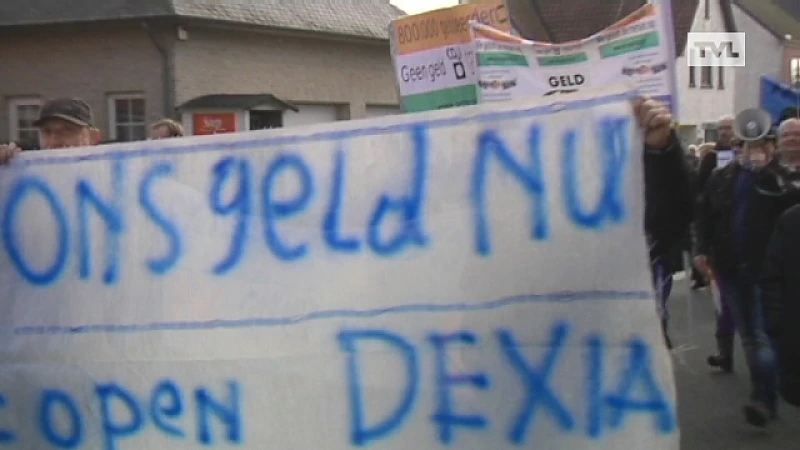 800.000 gedeerden
Geen geld
GELD
TVL
ONS geld NU
open DEXIA